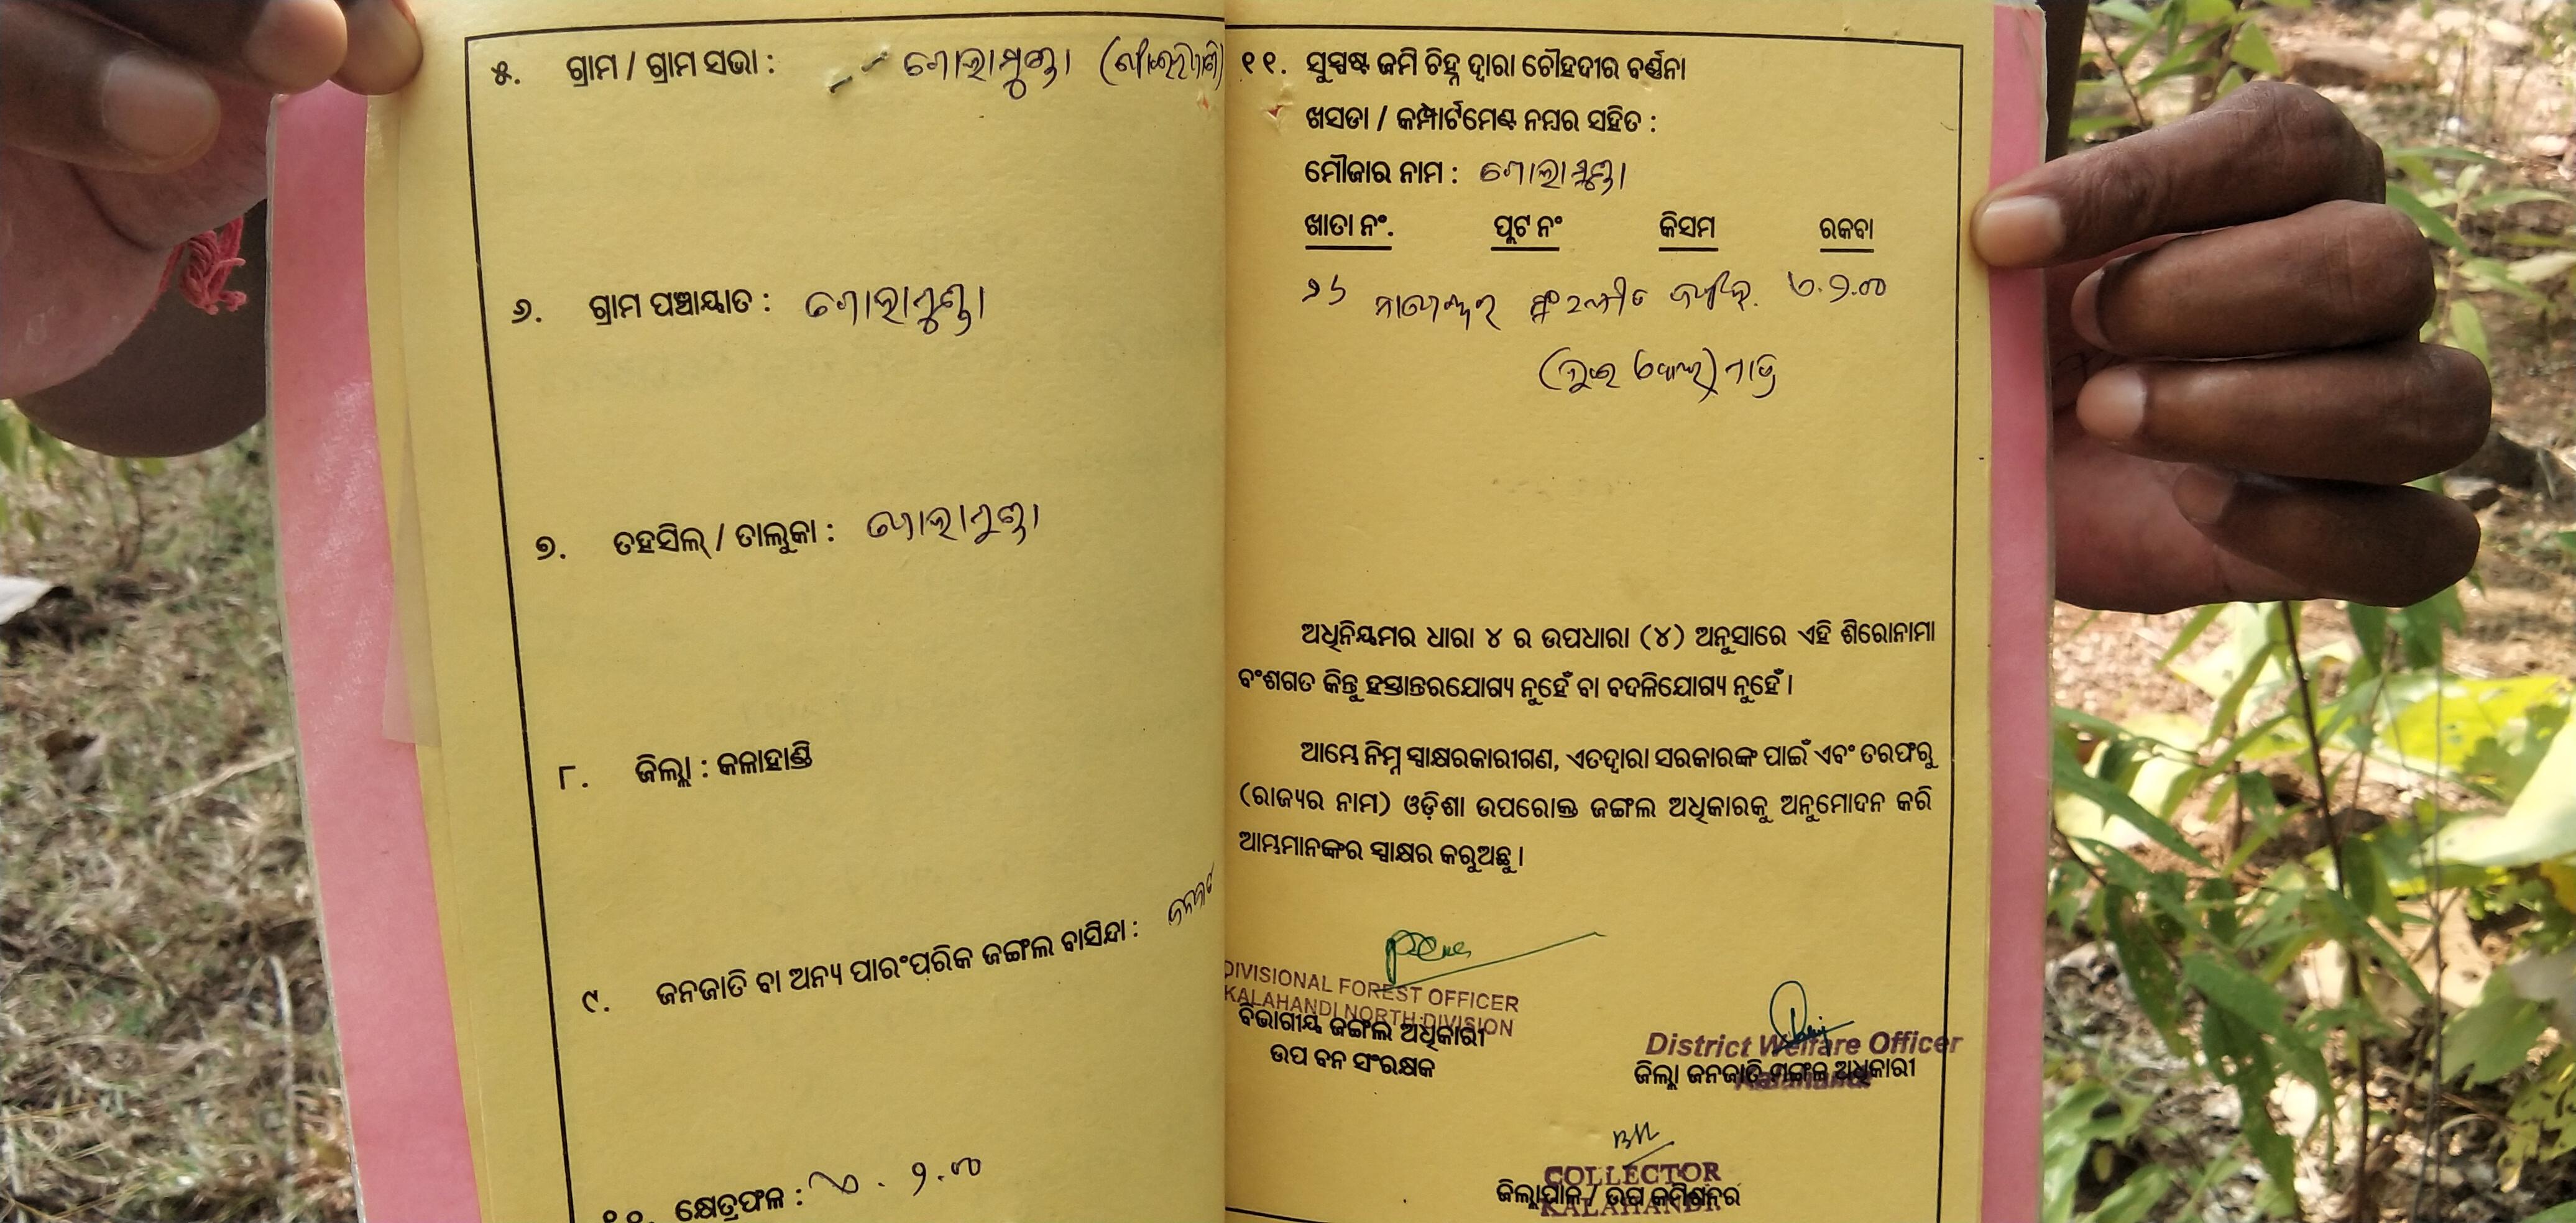 ୫. ଗ୍ରାମ / ଗ୍ରାମ ସଭା : ଗୋଲାମୁଣ୍ଡା
୬. ଗ୍ରାମ ପଞ୍ଚାୟାତ : ଗୋଲାମୁଣ୍ଡା
୭. ତହସିଲ୍ / ତାଲୁକା : ଗୋଲାମୁଣ୍ଡା
୮. ଜିଲ୍ଲା : କଳାହାଣ୍ଡି
୯. ଜନଜାତି ବା ଅନ୍ୟ ପାରଂପରିକ ଜଙ୍ଗଲ ବାସିନ୍ଦା :
୧୦. କ୍ଷେତ୍ରଫଳ :
୧୧. ସୁସ୍ପଷ୍ଟ ଜମି ଚିହ୍ନ ଦ୍ୱାରା ଚୌହଦୀର ବର୍ଣ୍ଣନା
ଖସଡା / କମ୍ପାର୍ଟମେଣ୍ଟ ନମ୍ବର ସହିତ :
ମୌଜାର ନାମ : ଗୋଲାମୁଣ୍ଡା
ଖାତା ନଂ. ପ୍ଲଟ ନଂ କିସମ ରକବା
ଅଧିନିୟମର ଧାରା ୪ ର ଉପଧାରା (୪) ଅନୁସାରେ ଏହି ଶିରୋନାମା
ବଂଶଗତ କିନ୍ତୁ ହସ୍ତାନ୍ତରଯୋଗ୍ୟ ନୁହେଁ ବା ବଦଳିଯୋଗ୍ୟ ନୁହେଁ ।
ଆମ୍ଭେ ନିମ୍ନ ସ୍ୱାକ୍ଷରକାରୀଗଣ, ଏତଦ୍ୱାରା ସରକାରଙ୍କ ପାଇଁ ଏବଂ ତରଫରୁ
(ରାଜ୍ୟର ନାମ) ଓଡ଼ିଶା ଉପରୋକ୍ତ ଜଙ୍ଗଲ ଅଧିକାରକୁ ଅନୁମୋଦନ କରି
ଆମ୍ଭମାନଙ୍କର ସ୍ୱାକ୍ଷର କରୁଅଛୁ ।
DIVISIONAL FOREST OFFICER
KALAHANDI NORTH DIVISION
ବିଭାଗୀୟ ଜଙ୍ଗଲ ଅଧିକାରୀ
ଉପ ବନ ସଂରକ୍ଷକ
District Welfare Officer
ଜିଲ୍ଲା ଜନଜାତି ମଙ୍ଗଳ ଅଧିକାରୀ
Kalahandi
COLLECTOR
ଜିଲ୍ଲାପାଳ / ଉପ କମିଶନର
KALAHANDI